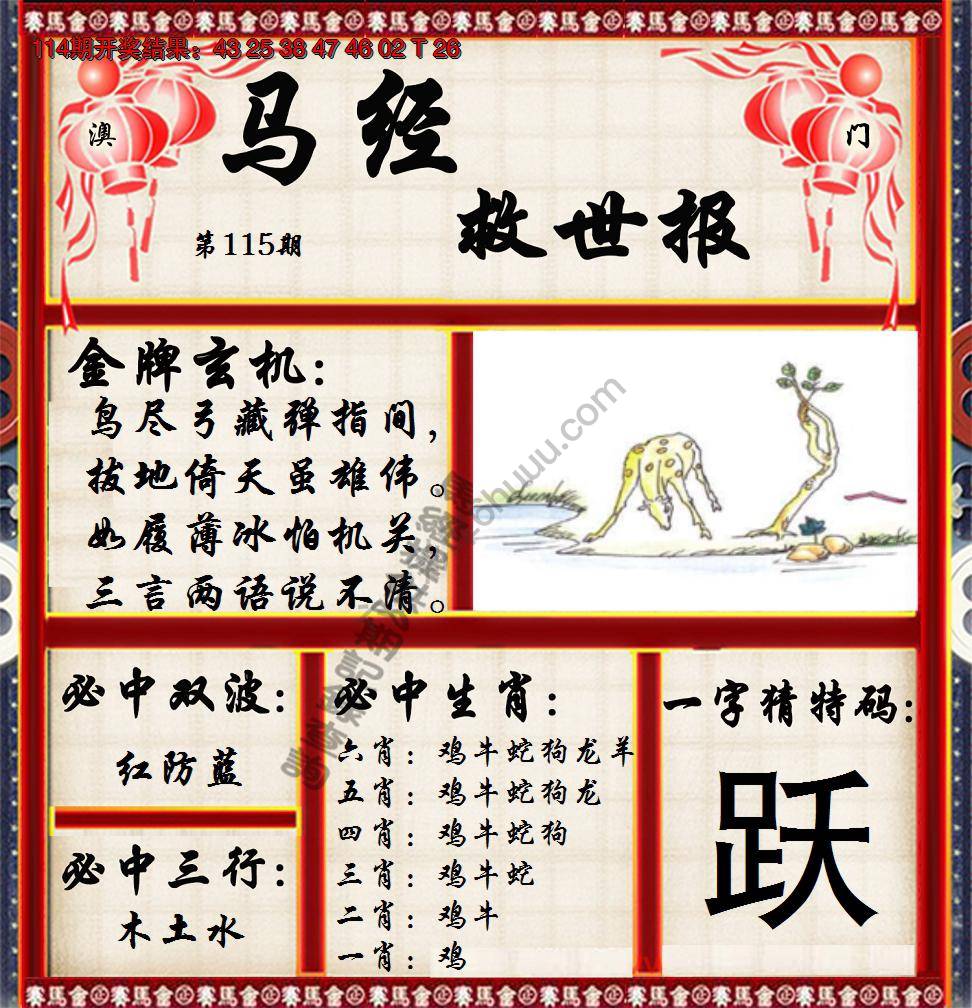 114期开奖结果：43 25 38 47 46 02 T 26
澳 门
马经
救世报
第115期
金牌玄机：
鸟尽弓藏弹指间，
拔地倚天虽雄伟。
如履薄冰怕机关，
三言两语说不清。
必中双波：
红防蓝
必中三行：
木土水
必中生肖：
六肖：鸡牛蛇狗龙羊
五肖：鸡牛蛇狗龙
四肖：鸡牛蛇狗
三肖：鸡牛蛇
二肖：鸡牛
一肖：鸡
一字猜特码：
跃